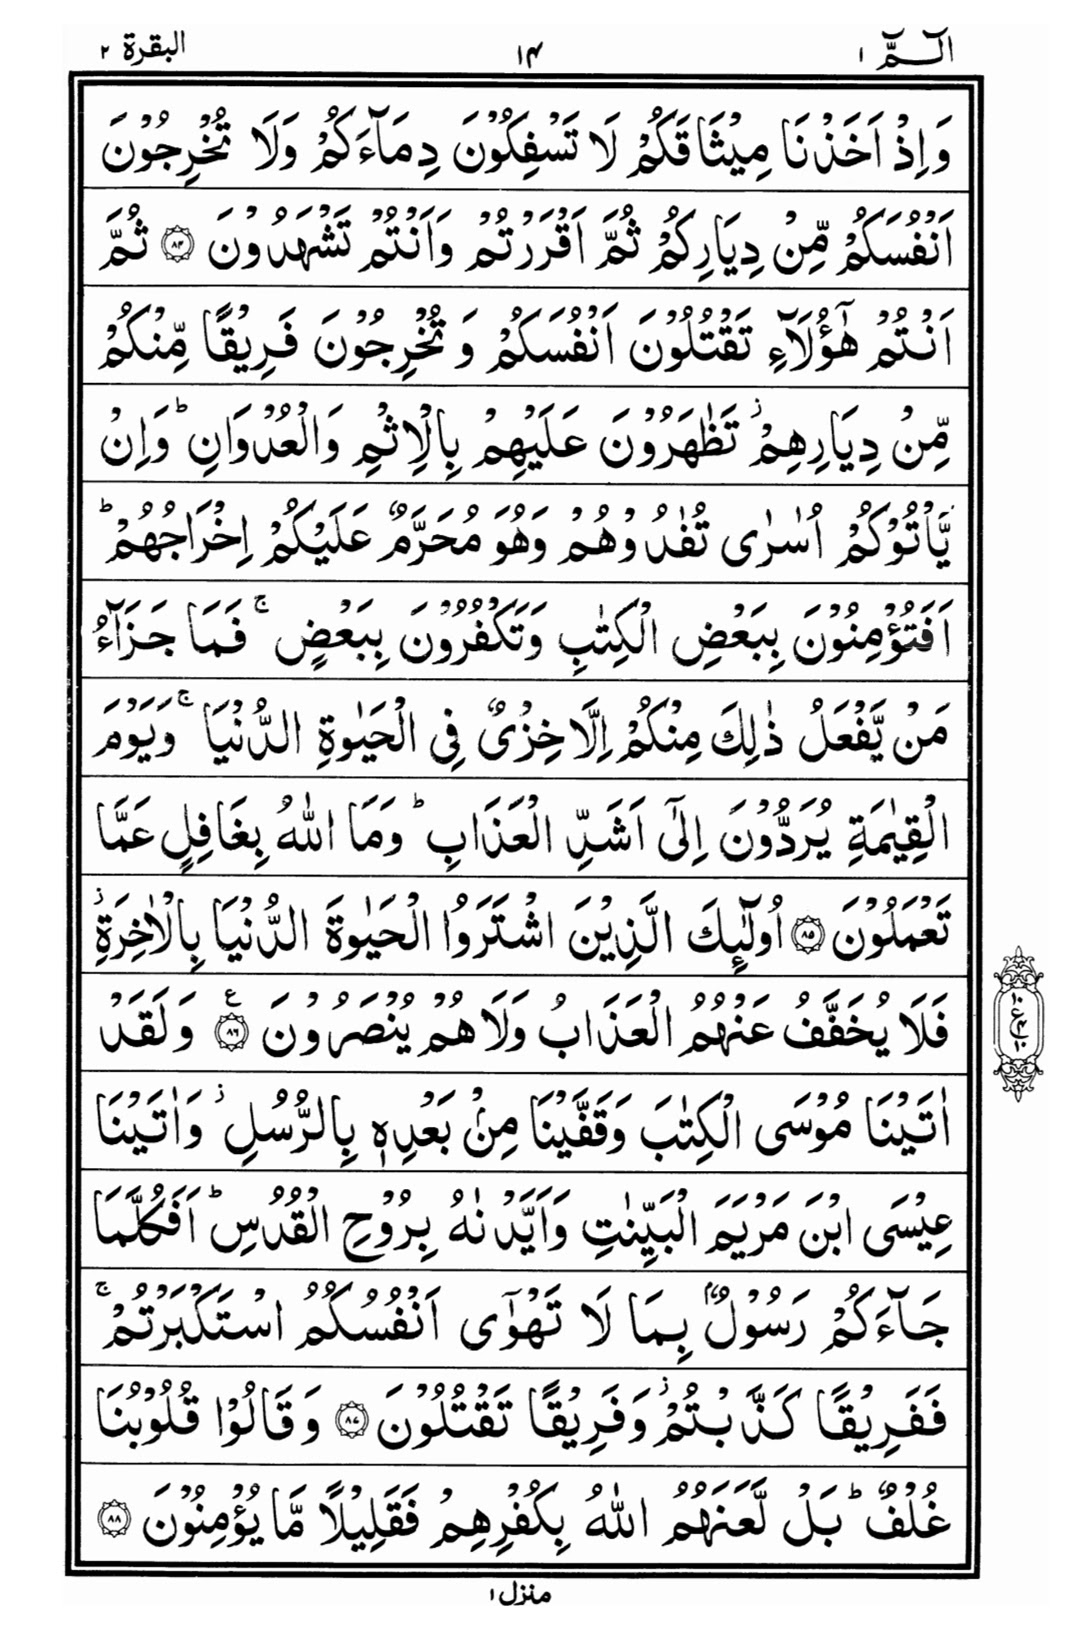 الٓـمّٓ ١
١٤
البقرة ٢
وَاِذْ اَخَذْنَا مِيْثَاقَكُمْ لَا تَسْفِكُوْنَ دِمَآءَكُمْ وَلَا تُخْرِجُوْنَ
اَنْفُسَكُمْ مِّنْ دِيَارِكُمْ ثُمَّ اَقْرَرْتُمْ وَاَنْتُمْ تَشْهَدُوْنَ ۝٨٤ ثُمَّ
اَنْتُمْ هٰٓؤُلَآءِ تَقْتُلُوْنَ اَنْفُسَكُمْ وَ تُخْرِجُوْنَ فَرِيْقًا مِّنْكُمْ
مِّنْ دِيَارِهِمْ ۡ تَظٰهَرُوْنَ عَلَيْهِمْ بِالْاِثْمِ وَالْعُدْوَانِ ؕ وَاِنْ
يَّاْتُوْكُمْ اُسٰرٰى تُفٰدُوْهُمْ وَهُوَ مُحَرَّمٌ عَلَيْكُمْ اِخْرَاجُهُمْ ؕ
اَفَتُؤْمِنُوْنَ بِبَعْضِ الْكِتٰبِ وَتَكْفُرُوْنَ بِبَعْضٍ ۚ فَمَا جَزَآءُ
مَنْ يَّفْعَلُ ذٰلِكَ مِنْكُمْ اِلَّا خِزْىٌ فِى الْحَيٰوةِ الدُّنْيَا ۚ وَيَوْمَ
الْقِيٰمَةِ يُرَدُّوْنَ اِلٰٓى اَشَدِّ الْعَذَابِ ؕ وَمَا اللّٰهُ بِغَافِلٍ عَمَّا
تَعْمَلُوْنَ ۝٨٥ اُولٰٓئِكَ الَّذِيْنَ اشْتَرَوُا الْحَيٰوةَ الدُّنْيَا بِالْاٰخِرَةِ ۡ
فَلَا يُخَفَّفُ عَنْهُمُ الْعَذَابُ وَلَا هُمْ يُنْصَرُوْنَ ۝٨٦ ع وَلَقَدْ
اٰتَيْنَا مُوْسَى الْكِتٰبَ وَقَفَّيْنَا مِنْۢ بَعْدِهٖ بِالرُّسُلِ ۡ وَاٰتَيْنَا
عِيْسَى ابْنَ مَرْيَمَ الْبَيِّنٰتِ وَاَيَّدْنٰهُ بِرُوْحِ الْقُدُسِ ؕ اَفَكُلَّمَا
جَآءَكُمْ رَسُوْلٌۢ بِمَا لَا تَهْوٰٓى اَنْفُسُكُمُ اسْتَكْبَرْتُمْ ۚ
فَفَرِيْقًا كَذَّبْتُمْ ۡ وَفَرِيْقًا تَقْتُلُوْنَ ۝٨٧ وَقَالُوْا قُلُوْبُنَا
غُلْفٌ ؕ بَلْ لَّعَنَهُمُ اللّٰهُ بِكُفْرِهِمْ فَقَلِيْلًا مَّا يُؤْمِنُوْنَ ۝٨٨
منزل ١